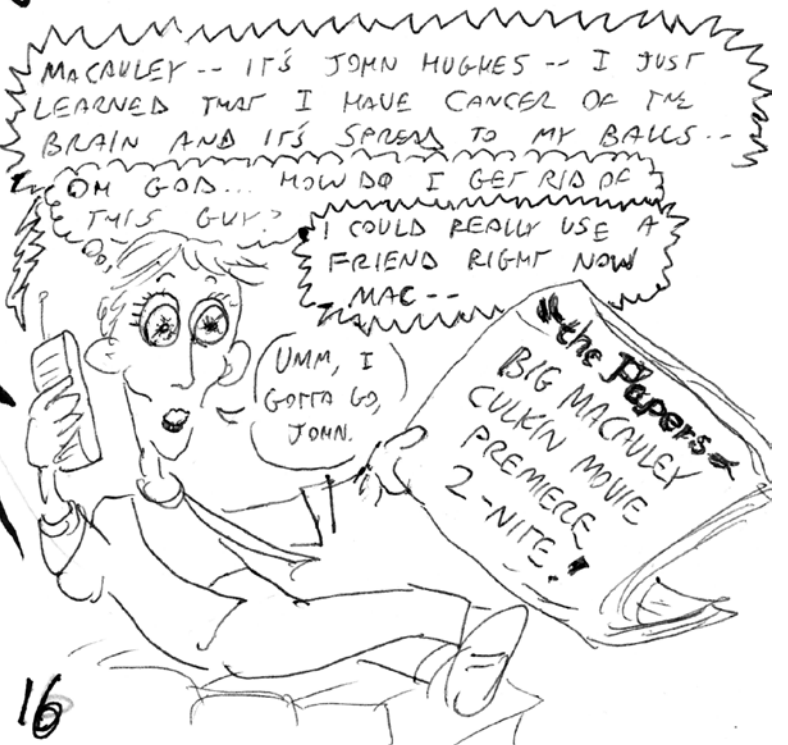 MACAULEY -- IT'S JOHN HUGHES -- I JUST
LEARNED THAT I HAVE CANCER OF THE
BRAIN AND IT'S SPREAD TO MY BALLS --
OH GOD... HOW DO I GET RID OF
THIS GUY?
I COULD REALLY USE A
FRIEND RIGHT NOW
MAC --
UMM, I
GOTTA GO,
JOHN.
"the Papers"
BIG MACAULEY
CULKIN MOVIE
PREMIERE
2-NITE!
16